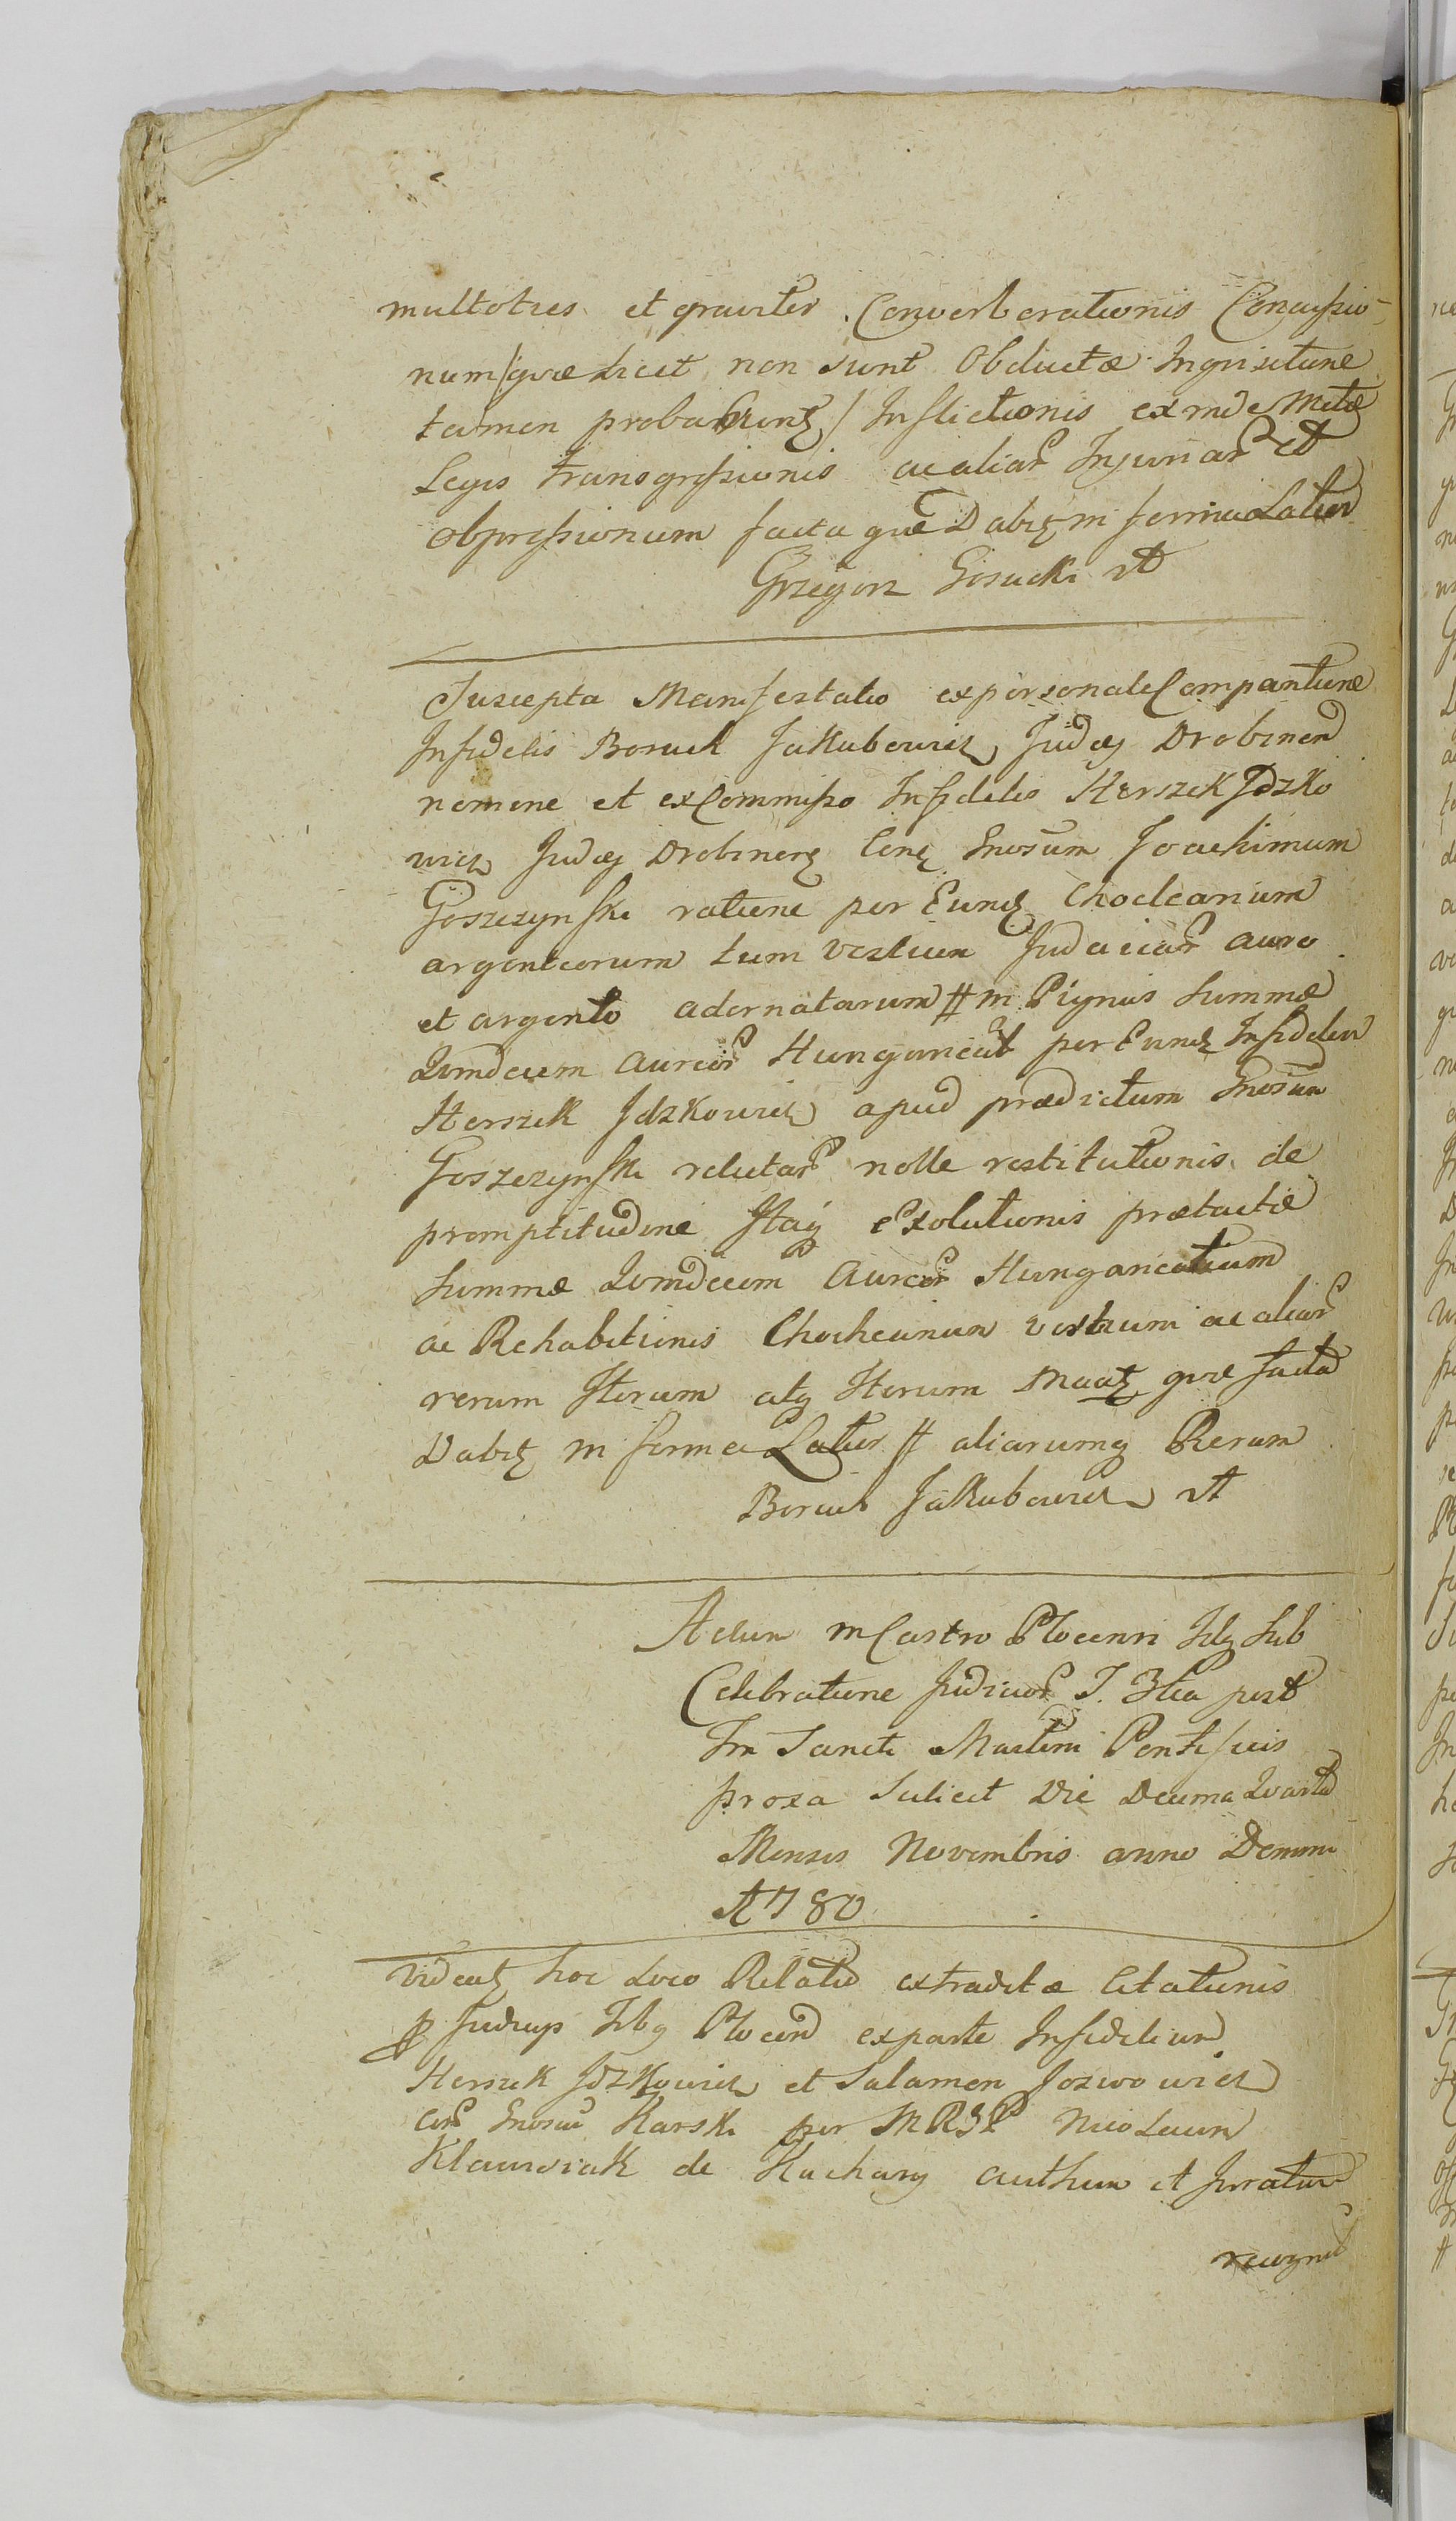 multoties et graviter Converberationis Concussio-
num /quæ licet non sunt Obductæ Inquisitione
tamen probabuntꝫ/ Inflictionis exinde Metæ
Legis transgressionis ac aliar Injuriar et
obpressionum facta quæ Dabitꝫ in forma Latior
Grzegorz Gosucki mp
Suscepta Manifestatio ex personali Comparitione
Infidelis Boruch Jakubowicz Judæj Drobinen
nomine et ex Commisso Infidelis Herszek Jdzko
wicz Judæj Drobinenꝫ Conꝫ Gnosum Joachimum
Goszczynski ratione per Eundꝫ Choclearium
argenteorum tum vestium Judaicar auro
et argento adornatarum # in Pignus Summæ
Quindecim Aureor Hungarical per Eundꝫ Infidelem
Herszek Jdzkowicz apud prædictum Gnosum
Goszczynski relictar nolle restitutionis de
promptitudine Itaq exolutionis prætactæ
Summæ Quindecim Aureor Hungaricalium
ac Rehabitionis Choclearium vestium ac aliar
rerum Iterum atq Iterum Maatꝫ quæ facta
Dabitꝫ in forma Latior # aliarumq Rerum
Boruch Jakubowicz mp
Actum in Castro Plocensi Ilg Sub
Celebratione Judicior F. 3tia post
Fm Sancti Martini Pontificis
proxa Scilicet Die Decima Quarta
Mensis Novembris anno Domini
1780
Videatꝫ hoc Loco Relatio extraditæ Citationis
p Judicys Ilg Plocen ex parte Infidelium
Herszek Jdzkowicz et Salamon Jozwowicz
con Gnosum Karski per MRGP Nicolaum
Klawsiak de Kuchary authum et Juratum
recognit